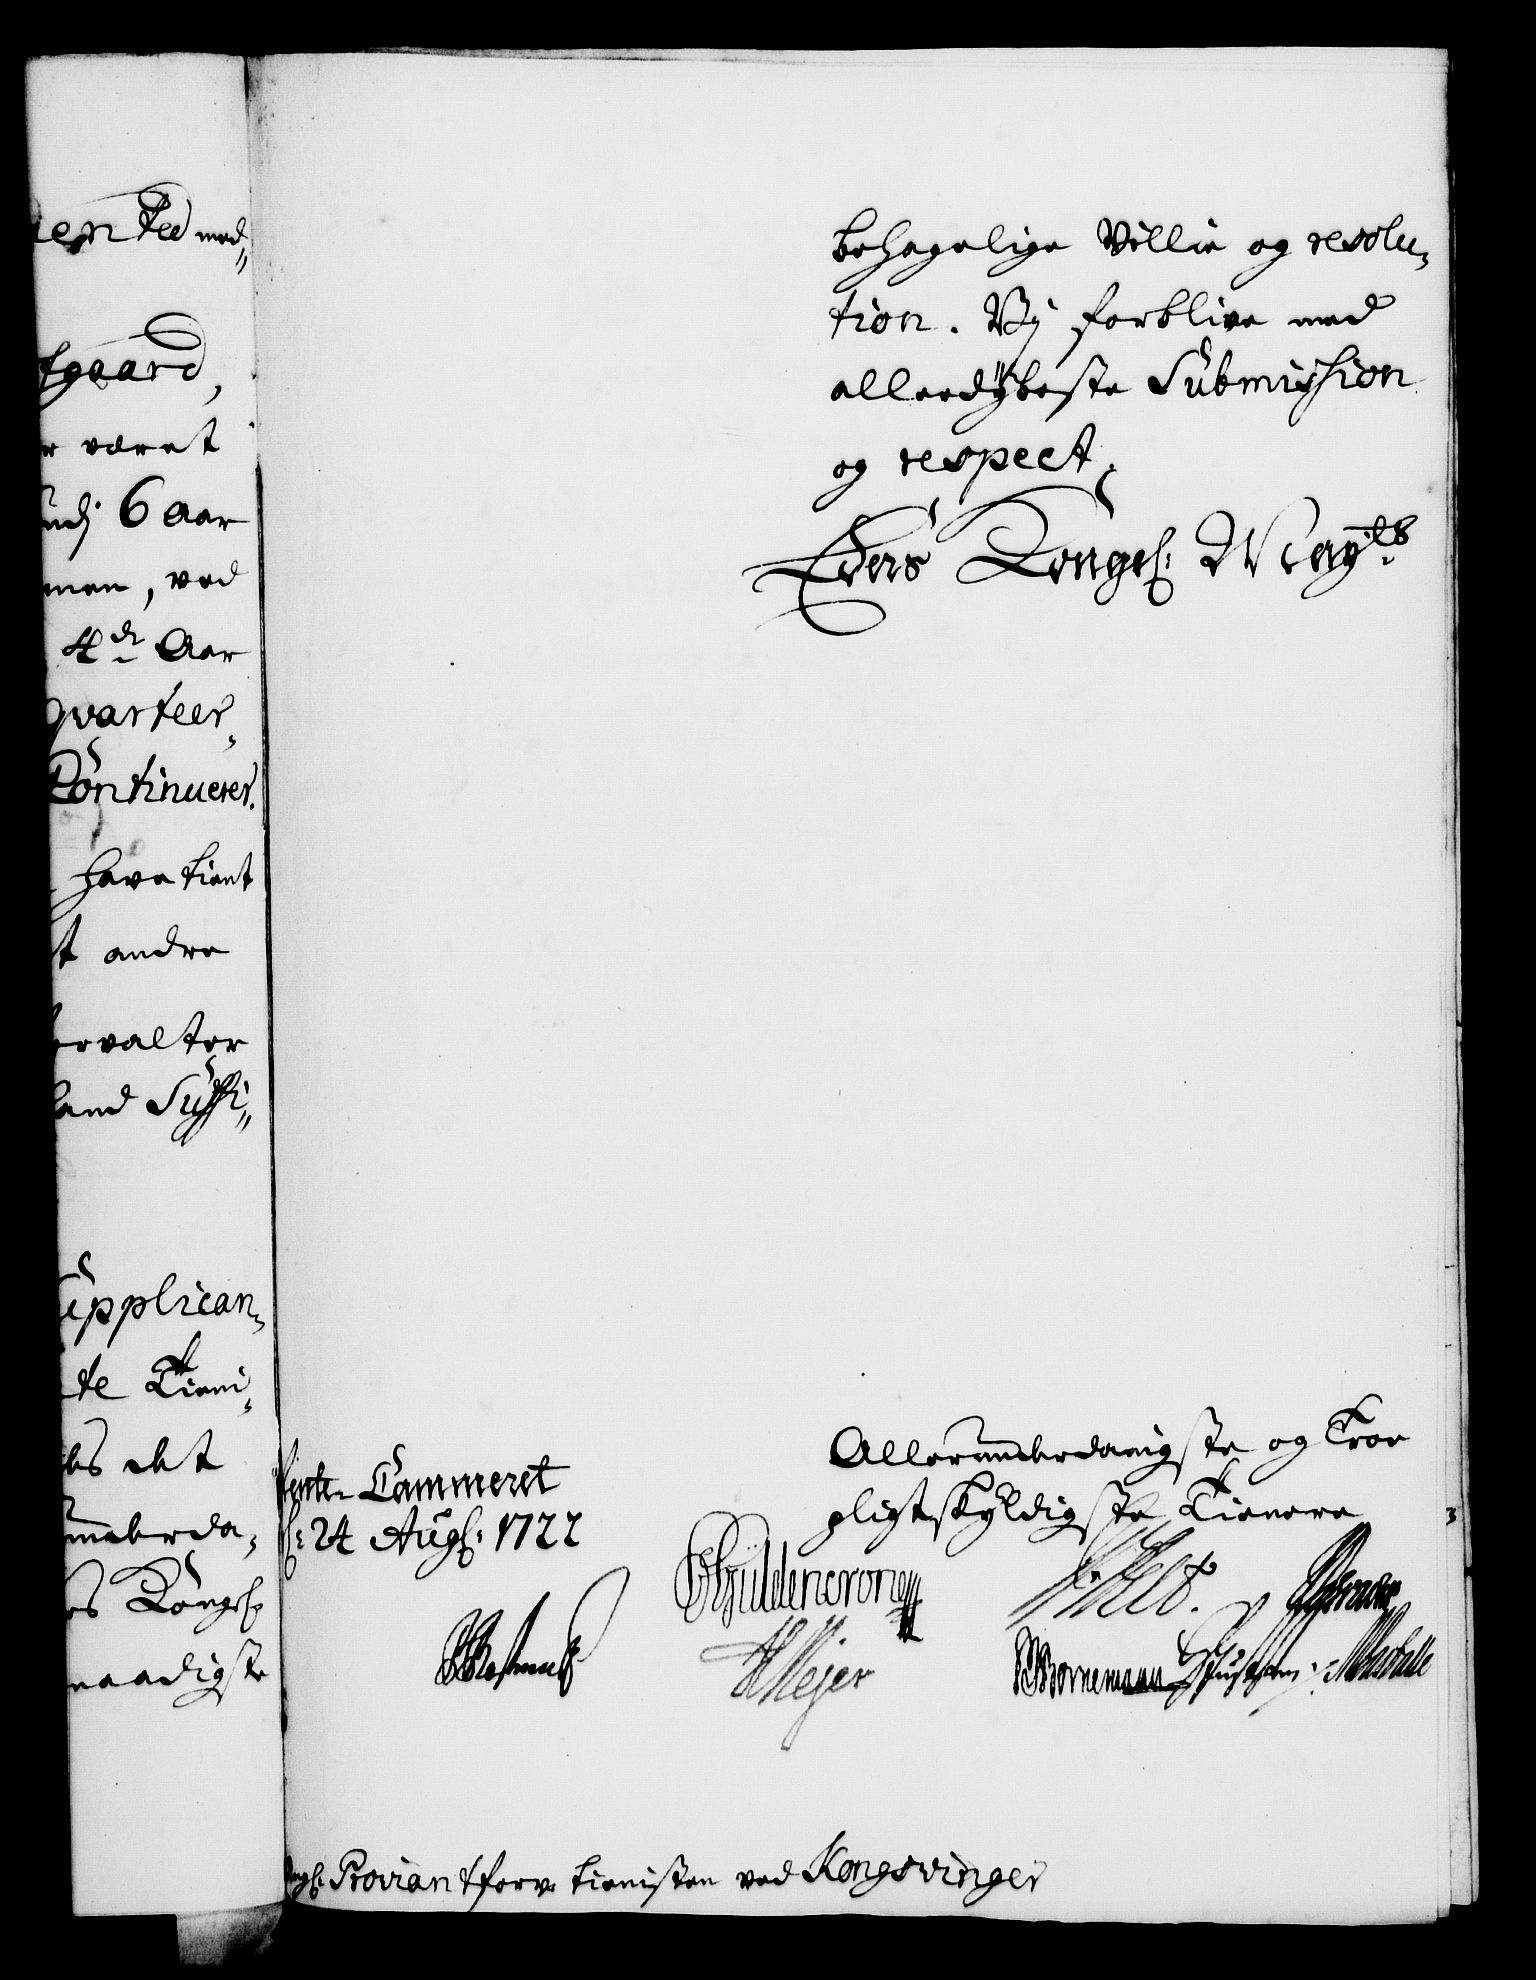 ented med„
fgaard,
r været
udj 6 Aar
men, ved
4de Aar
qvarteer„
Continuerer.
have tient
t andre
orvalter
hand Suffi„
upplican„
te Tieni„
es det
underda„
es Kongel:
naadigste
behagelige Villie og resolu„
tion. Vj forblive med
allerdÿbeste Submission
og respect,
Eders Kongel: Maÿts
Rente Cammeret
d: 24 Aug: 1722
Allerunderdanigste og Troe
pligtskÿldigste Tienere
Güldencrone
Meÿer
Bornemann
Proviantforv: tienisten ved Kongsvinger